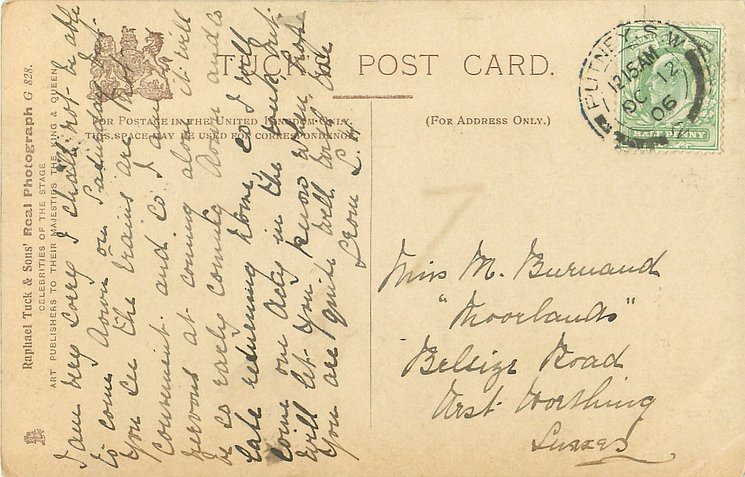 TUCK POST CARD.
FOR POSTAGE IN THE UNITED KINGDOM ONLY.
THIS SPACE MAY BE USED FOR CORRESPONDENCE
(FOR ADDRESS ONLY.)
Raphael Tuck & Sons' Real Photograph G 828.
CELEBRITIES OF THE STAGE
ART PUBLISHERS TO THEIR MAJESTIES THE KING & QUEEN
PUTNEY S.W.
12.15AM
OC 12
06
HALF PENNY
I am very sorry I shall not be able
to come down on Saturday but
you see the trains are not
convenient and so I am
nervous at coming alone it will
be so early coming down and so
late returning home, so I will
come one day in the week but
will let you know when, hope
you are quite well, best love
from L.
Miss M. Burnand
"Moorlands"
Belsize Road
West Worthing
Sussex